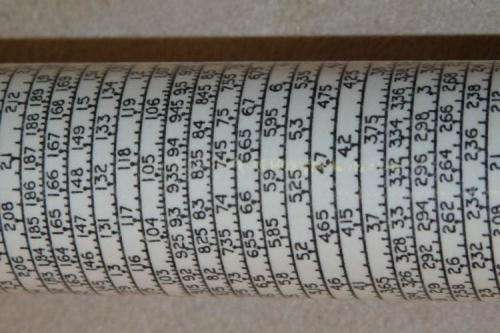 212 21 208 206
189 188 187 186 185 184 183
168 167 166 165 164 163
15 149 148 147 146
134 133 132 131 13
119 118 117 116
106 105 104
945 94 935 93 925 92
845 84 835 83 825
755 75 745 74 735 73
67 665 66 655 65
6 595 59 585 58
535 53 525 52
475 465 46
425 42 415 41
375 37 365
336 334 332 33 328 326
3 298 296 294 292 29
268 266 264 262 26 258
238 236 234 232